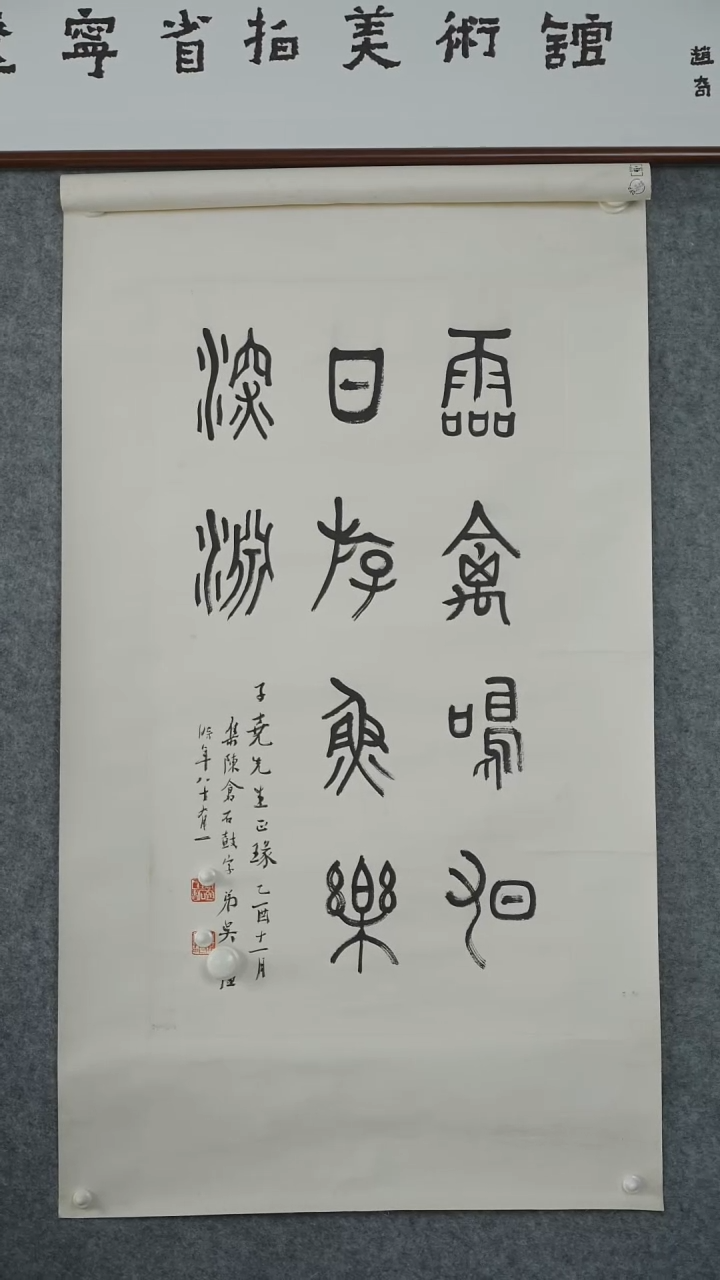 寧省拍美術舘
趙奇
靈禽鳴旭
日存魚樂
深淵
子堯先生正瑑 乙酉十一月
集陳倉石鼓字 弟吳
時年八十有一